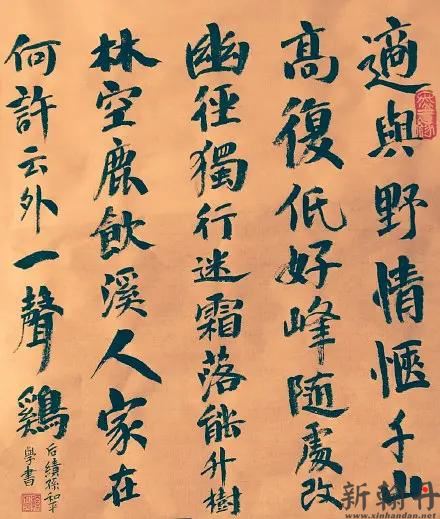 適與野情愜千山
高復低好峰随處改
幽徑獨行迷霜落能升樹
林空鹿飲溪人家在
何許云外一聲鷄
后績孫和平
學書
新翰丹
www.xinhandan.net